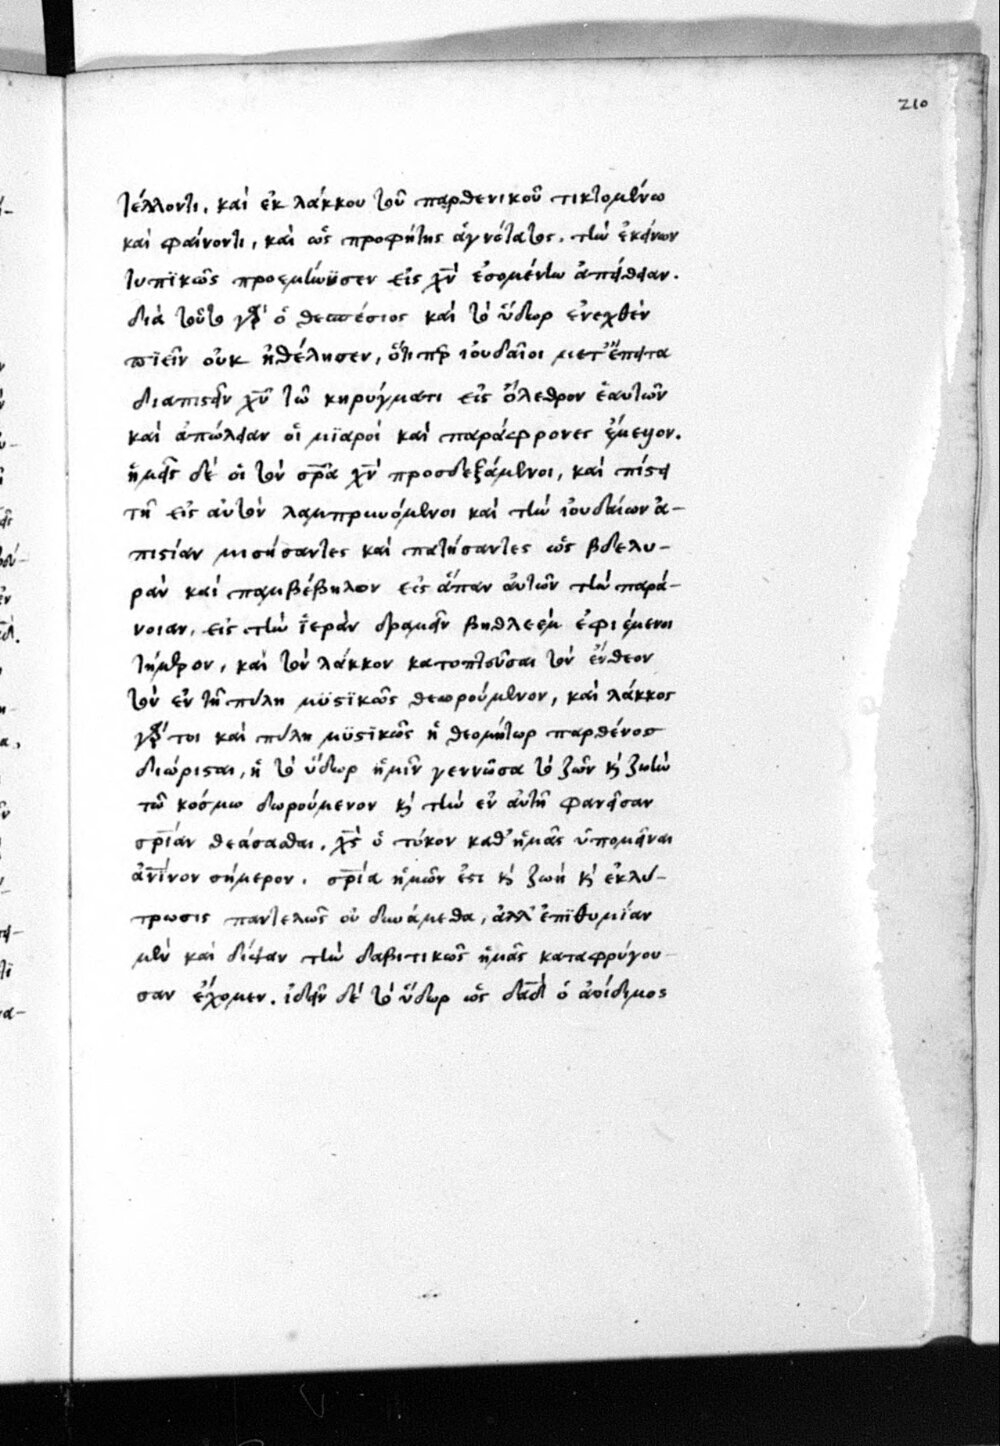 210
τέλλοντι, καὶ ἐκ λάκκου τοῦ παρθενικοῦ τικτομένω
καὶ φαίνοντι, καὶ ὡς προφήτης ἁγνότατος. τὴν ἐκείνων
τυπϊκῶς προεμήνϋσεν εἰς χν̅ ἐσομένην ἀπείθειαν.
διὰ τοῦτο γὰρ ὁ θεσπέσιος καὶ τὸ ὕδωρ ἐνεχθὲν
πϊεῖν οὐκ ἠθέλησεν, ὅτιπερ ἰουδαῖοι μετέπειτα
διαπιστεῖν χυ̅ τῶ κηρύγματι εἰς ὄλεθρον ἑαυτῶν
καὶ ἀπώλειαν οἱ μϊαροὶ καὶ παράφρονες ἔμελλον.
ἡμεῖς δὲ οἱ τὸν σρ̅α χν̅ προσδεξάμενοι, καὶ πίστει
τῆ εἰς αὐτὸν λαμπρυνόμενοι καὶ τὴν ἰουδαίων ἀ-
πιστίαν μισήσαντες καὶ πατήσαντες ὡς βδελυ-
ρὰν καὶ παμβέβηλον εἰς ἅπαν αὐτῶν τὴν παρά-
νοιαν, εἰς τὴν ἱερὰν δραμεῖν βηθλεὲμ ἐφιέμενοι
τήμερον, καὶ τὸν λάκκον κατοπτεῦσαι τὸν ἔνθεον
τὸν ἐν τῆ πύλη μϋστϊκῶς θεωρούμενον, καὶ λάκκος
γάρ τοι καὶ πύλη μϋστϊκῶς ἡ θεομήτωρ παρθένος
διώρισται, ἡ τὸ ὕδωρ ἡμῖν γεννῶσα τὸ ζῶν κ̀ ζωὴν
τῶ κόσμω δωρούμενον κ̀ τὴν ἐν αὐτῆ φανεῖσαν
σρ̅ίαν θεάσασθαι, χς̅ ὁ τόκον καθ' ἡμᾶς ὑπομεῖναι
ἀν̅ινον σήμερον. σρ̅ία ἡμῶν ἐστι κ̀ ζωὴ κ̀ ἐκλύ-
τρωσις παντελῶς οὐ δυνάμεθα, ἀλλ' ἐπϊθυμίαν
μὲν καὶ δίψαν τὴν δαβιτικῶς ἡμᾶς καταφρύγου-
σαν ἔχομεν. ἰδεῖν δὲ τὸ ὕδωρ ὡς δα̅δ ὁ ἀοίδιμος